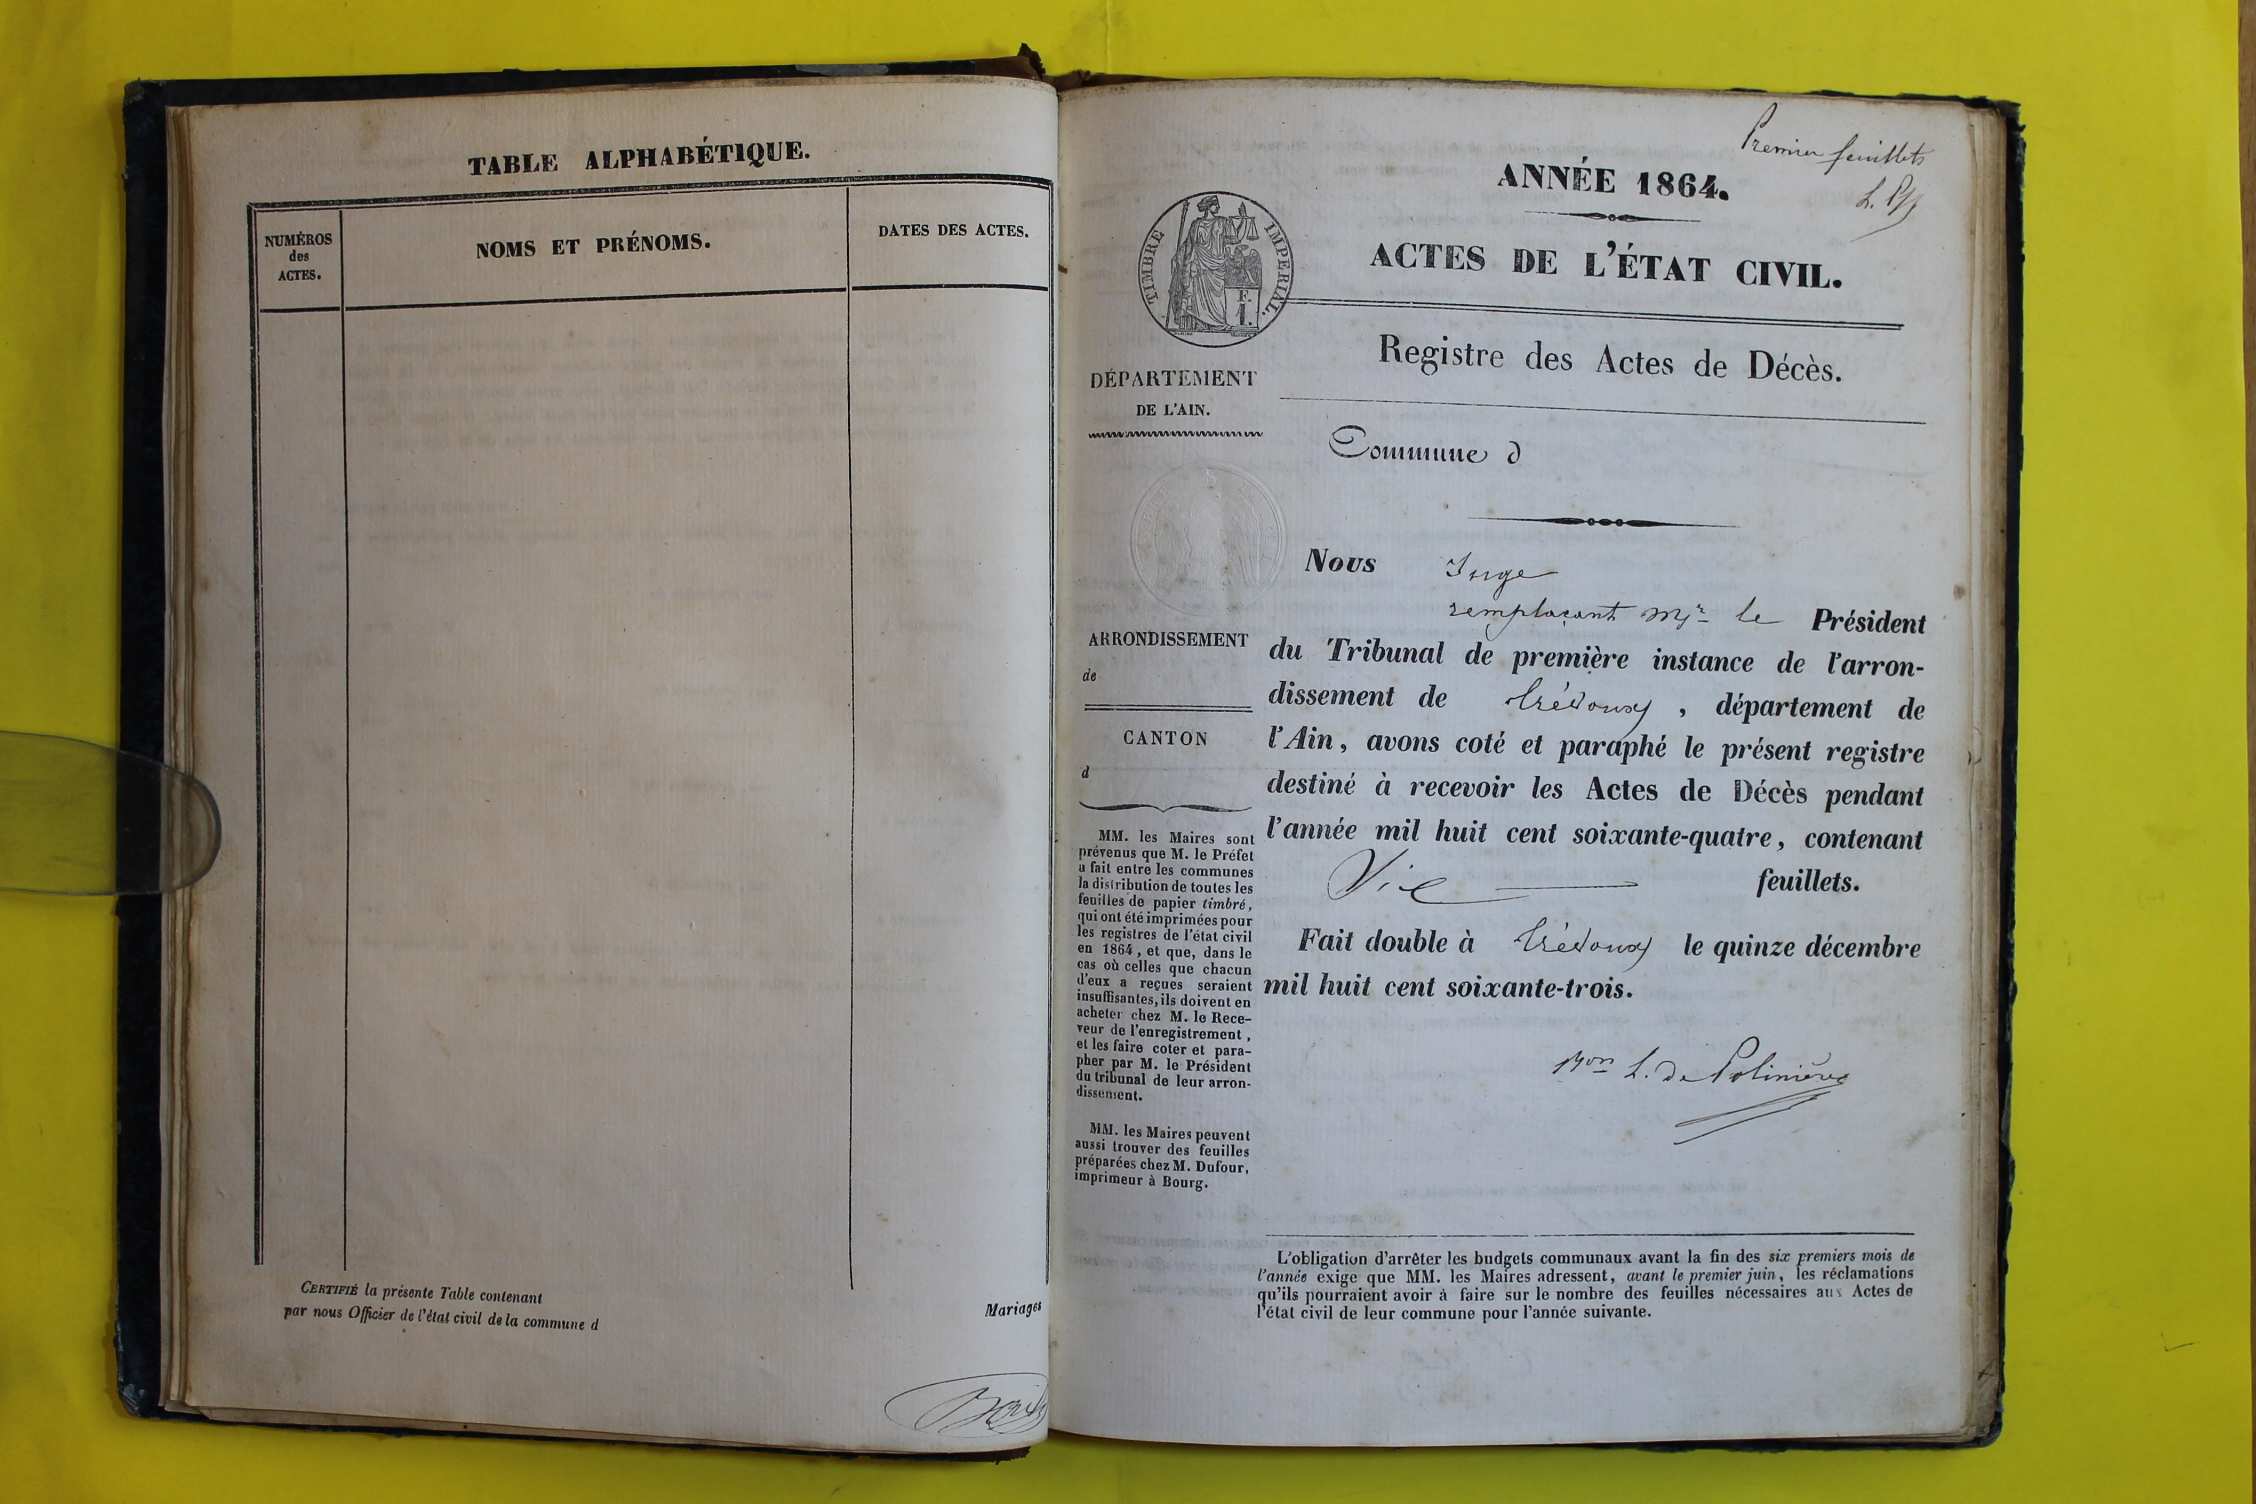 TABLE ALPHABÉTIQUE.
NUMÉROS
des
ACTES.
NOMS ET PRÉNOMS.
DATES DES ACTES.
CERTIFIÉ la présente Table contenant
par nous Officier de l'état civil de la commune d
Mariages
Premier feuillets
ANNÉE 1864.
ACTES DE L'ÉTAT CIVIL.
TIMBRE IMPERIAL.
F.
1.
Registre des Actes de Décès.
DÉPARTEMENT
DE L'AIN.
Commune d
Nous Juge
remplaçant Mr le Président
du Tribunal de première instance de l'arron-
dissement de Trévoux, département de
l'Ain, avons coté et paraphé le présent registre
destiné à recevoir les Actes de Décès pendant
l'année mil huit cent soixante-quatre, contenant
Six feuillets.
Fait double à Trévoux le quinze décembre
mil huit cent soixante-trois.
L. de Polinière
ARRONDISSEMENT
de
CANTON
d
MM. les Maires sont
prévenus que M. le Préfet
a fait entre les communes
la distribution de toutes les
feuilles de papier timbré,
qui ont été imprimées pour
les registres de l'état civil
en 1864, et que, dans le
cas où celles que chacun
d'eux a reçues seraient
insuffisantes, ils doivent en
acheter chez M. le Rece-
veur de l'enregistrement,
et les faire coter et para-
pher par M. le Président
du tribunal de leur arron-
dissement.
MM. les Maires peuvent
aussi trouver des feuilles
préparées chez M. Dufour,
imprimeur à Bourg.
L'obligation d'arrêter les budgets communaux avant la fin des six premiers mois de
l'année exige que MM. les Maires adressent, avant le premier juin, les réclamations
qu'ils pourraient avoir à faire sur le nombre des feuilles nécessaires aux Actes de
l'état civil de leur commune pour l'année suivante.